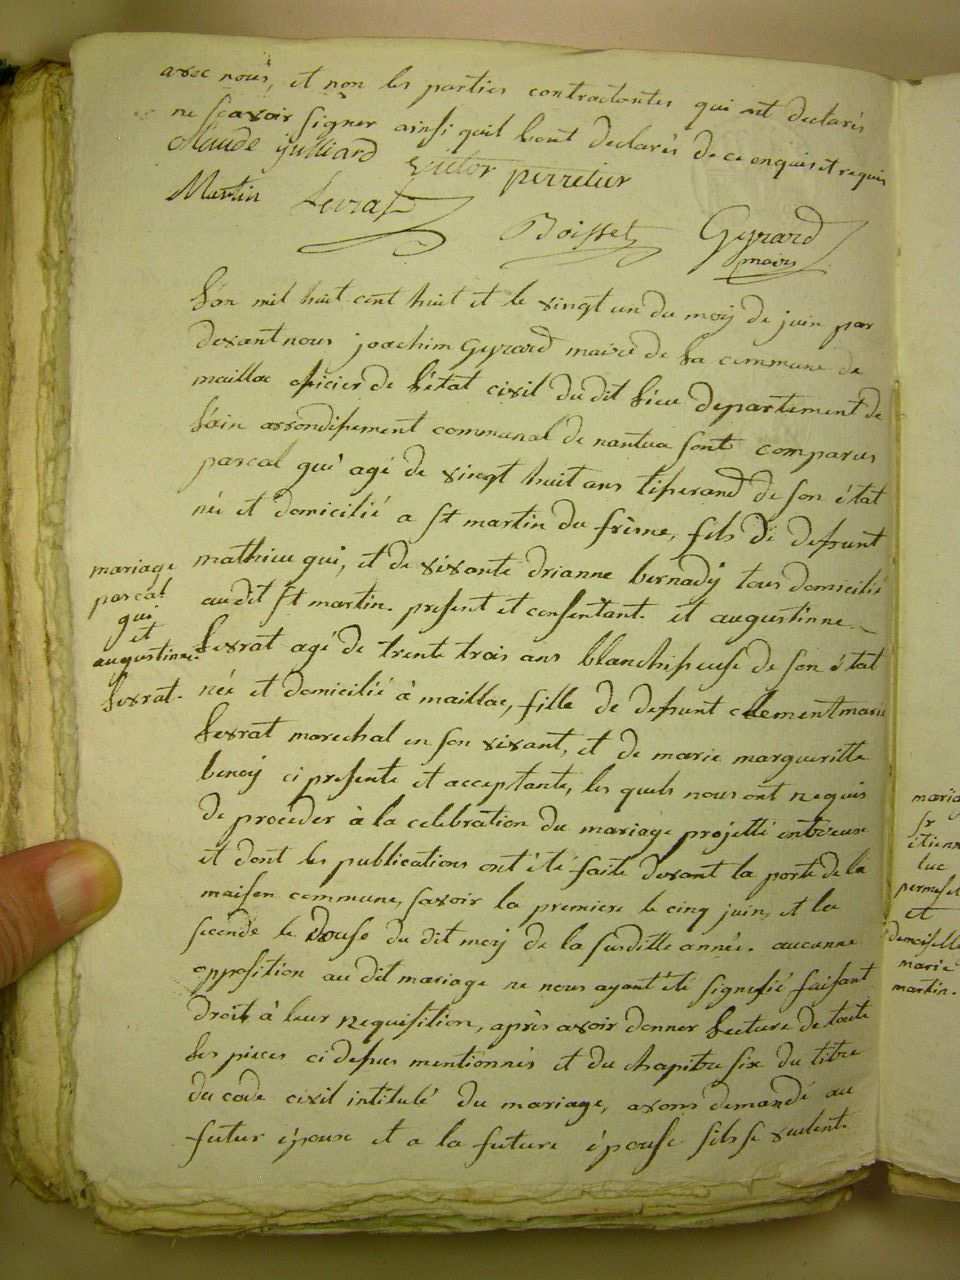 avec nous, et non les parties contractantes qui ont declarés
ne sçavoir signer ainsi quil l'ont declarés de ce enquis et requis
Claude julliard victor perretier
Martin Levrat Boisset Gyrard
maire
L'an mil huit cent huit et le vingt un du moy de juin par
devant nous joachim Gyrard maire de la commune de
maillac oficier de l'état civil du dit lieu departement de
l'ain arrondissement communal de nantua sont comparus
pascal gui agé de vingt huit ans tisserand de son état
née et domicilié a st martin du frêsne, fils de defunt
mathieu gui, et de vivante drianne bernady tous domicilié
audit st martin. present et consentant. et augustinne
Levrat agé de trente trois ans blanchisseuse de son état
née et domicilié à maillac, fille de defunt clement marie
Levrat marechal en son vivant, et de marie margueritte
benoy ci presente et acceptante, les quels nous ont requis
de proceder à la celebration du mariage projetté entreeux
et dont les publications ont été faite devant la porte de la
maison commune, savoir la premiere le cinq juin, et la
seconde le douse du dit moy de la susditte année. aucunne
opposition au dit mariage ne nous ayant été signifié faisant
droit à leur requisition, après avoir donner lecture de toute
les pieces ci dessus mentionnés et du chapitre six du titre
du code civil intitulé du mariage, avons demandé au
futur époux et a la future épouse sils se veulent
mariage
pascal
gui
et
augustinne
Levrat.
mariag
sr
etienn
luc
et
demoiselle
marie
martin.